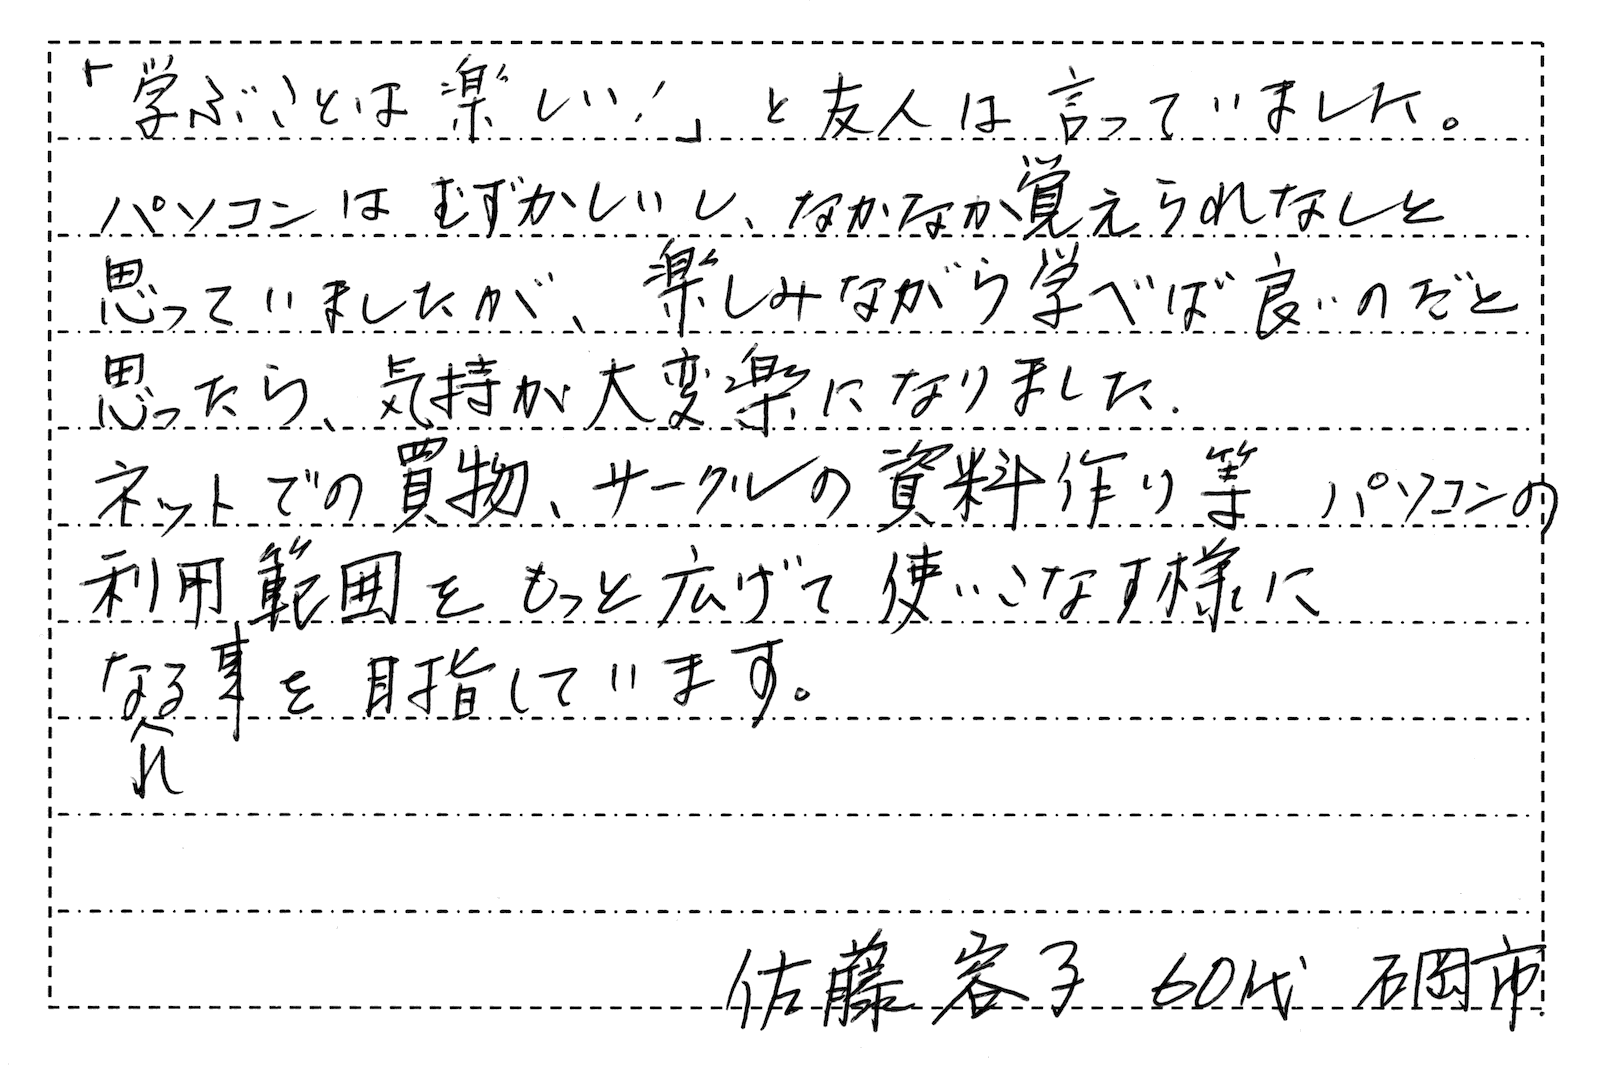 「学ぶことは楽しい!」と友人は言っていました。
パソコンはむずかしいし、なかなか覚えられないと
思っていましたが、楽しみながら学べば良いのだと
思ったら、気持が大変楽になりました.
ネットでの買物、サークルの資料作り等 パソコンの
利用範囲をもっと広げて使いこなす様に
なる事を目指しています。
れ
佐藤容子 60代 石岡市